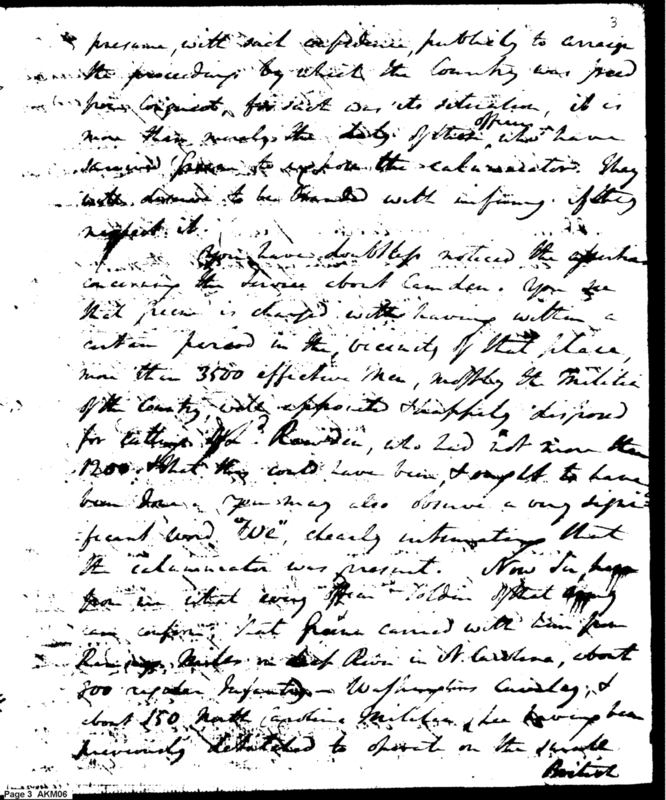 3
presume, with such confidence, publicly to arraign
the proceedings by which the Country was freed
from Conquest, for such was its situation, it is
more than merely the duty of those officers who have
to expose the calumniator. They
will deserve to be branded with infamy if they
neglect it.
You have doubtless noticed the assertions
concerning the Service about Camden. You see
that Greene is charged with having within a
certain period in the vicinity of that place,
more than 3500 effective Men, mostly the Militia
of the Country, well appointed & happily disposed
for cutting off Ld. Rawden, who had not more than
1200 & that this could have been, & ought to have
been done. You may also observe a very signi-
ficant word "We", clearly intimating that
the calumniator was present. Now Sir, hear
from me what every officer & Soldier of that army
can confirm, that Greene carried with him from
Ramseys Mills on deep River in N. Carolina, about
800 regular Infantry Washingtons Cavalry, &
about 150 North Carolina Militia, Lee having been
previously detached to operate on the small
British
Page 3 AKM06